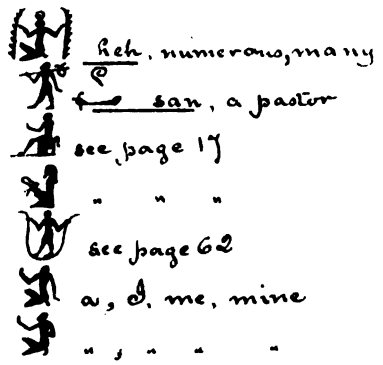 heh, numerous, many
san, a pastor
see page 17
" " "
see page 62
a, I, me, mine
" , " " "